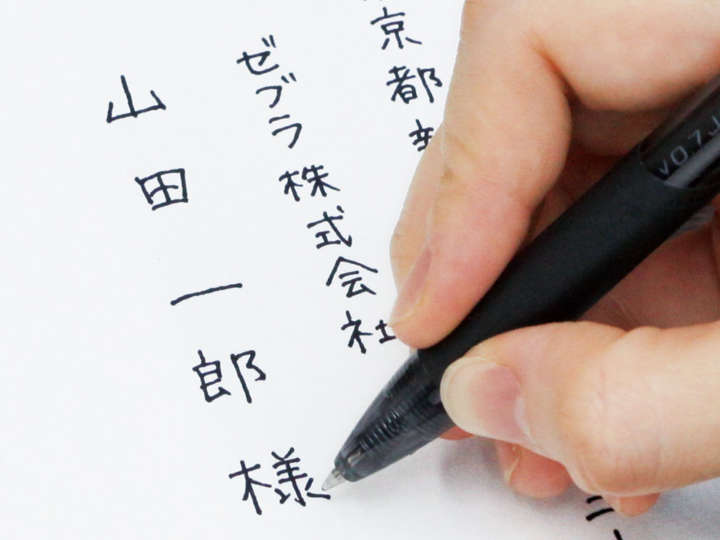 京都新
ゼブラ株式会社
山田一郎様